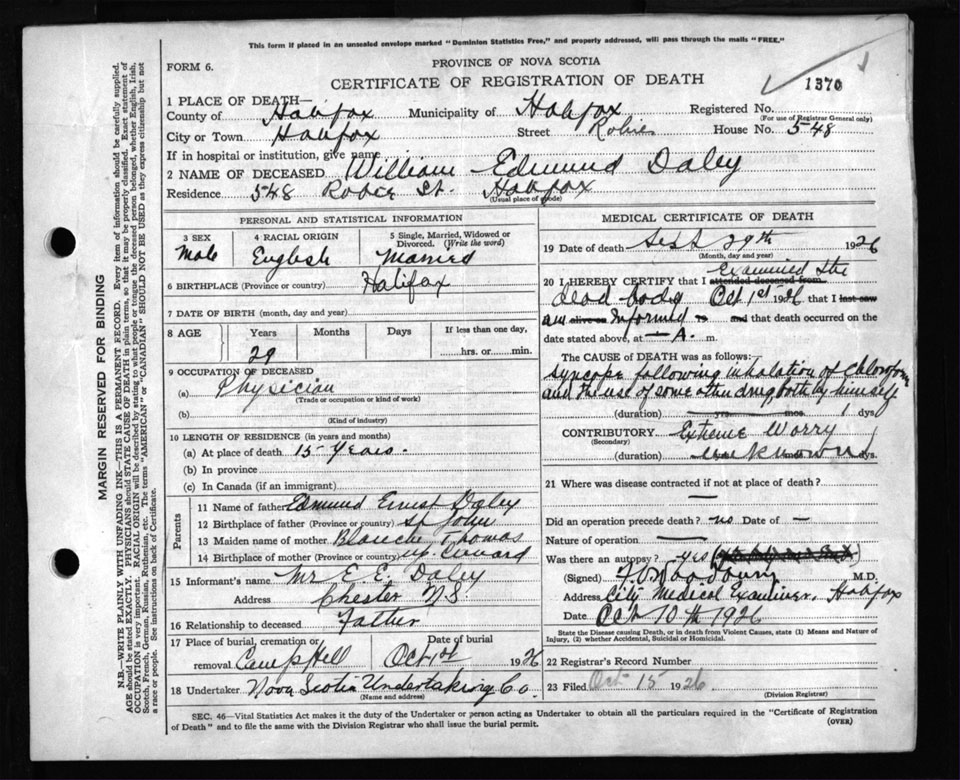 This form if placed in an unsealed envelope marked "Dominion Statistics Free," and properly addressed, will pass through the mails "FREE."
FORM 6.
PROVINCE OF NOVA SCOTIA
CERTIFICATE OF REGISTRATION OF DEATH
1370
1 PLACE OF DEATH—
County of Halifax Municipality of Halifax Registered No.
(For use of Registrar General only)
City or Town Halifax Street Robie House No. 548
If in hospital or institution, give name
2 NAME OF DECEASED William Edmund Daley
Residence 548 Robie St. Halifax
(Usual place of abode)
PERSONAL AND STATISTICAL INFORMATION
3 SEX 4 RACIAL ORIGIN 5 Single, Married, Widowed or Divorced. (Write the word)
Male English Married
6 BIRTHPLACE (Province or country) Halifax
7 DATE OF BIRTH (month, day and year)
8 AGE Years Months Days If less than one day,
29 hrs. or min.
9 OCCUPATION OF DECEASED
(a) Physician
(Trade or occupation or kind of work)
(b)
(Kind of industry)
10 LENGTH OF RESIDENCE (in years and months)
(a) At place of death 15 Years.
(b) In province
(c) In Canada (if an immigrant)
Parents
11 Name of father Edmund Ernest Daley
12 Birthplace of father (Province or country) St John
13 Maiden name of mother Blanche Thomas
14 Birthplace of mother (Province or country)
15 Informant's name Mr E. E. Daley
Address Chester NS
16 Relationship to deceased Father
17 Place of burial, cremation or removal. Camp Hill
Date of burial Oct 1st 1926
18 Undertaker Nova Scotia Undertaking Co.
(Name and address)
MEDICAL CERTIFICATE OF DEATH
19 Date of death Sept 29th 1926
(Month, day and year)
20 I HEREBY CERTIFY that I attended deceased from Examined the
dead body Oct 1st 1926 that I last saw
am alive on Informed and that death occurred on the
date stated above, at — A. m.
The CAUSE of DEATH was as follows:
Syncope following inhalation of Chloroform
and the use of some other drug both by himself
(duration) yrs. mos. 1 dys.
CONTRIBUTORY Extreme Worry
(Secondary)
(duration) unknown dys.
21 Where was disease contracted if not at place of death?
—
Did an operation precede death? no Date of —
Nature of operation —
Was there an autopsy? yes
(Signed) M.D.
Address City Medical Examiner, Halifax
Date Oct 10th 1926
State the Disease causing Death, or in death from Violent Causes, state (1) Means and Nature of Injury, (2) whether Accidental, Suicidal or Homicidal.
22 Registrar's Record Number
23 Filed Oct 15 1926
(Division Registrar)
SEC. 46—Vital Statistics Act makes it the duty of the Undertaker or person acting as Undertaker to obtain all the particulars required in the "Certificate of Registration
of Death" and to file the same with the Division Registrar who shall issue the burial permit. (OVER)
MARGIN RESERVED FOR BINDING
N.B.—WRITE PLAINLY WITH UNFADING INK—THIS IS A PERMANENT RECORD. Every item of information should be carefully supplied.
AGE should be stated EXACTLY. PHYSICIANS should STATE CAUSE OF DEATH in plain terms, so that it may be properly classified. Exact statement of
OCCUPATION is very important. RACIAL ORIGIN will be described by stating to what people or tongue the deceased person belonged, whether English, Irish,
Scotch, French, German, Russian, Ruthenian, etc. The terms "AMERICAN" or "CANADIAN" SHOULD NOT BE USED as they express citizenship but not
a race or people. See instructions on back of Certificate.